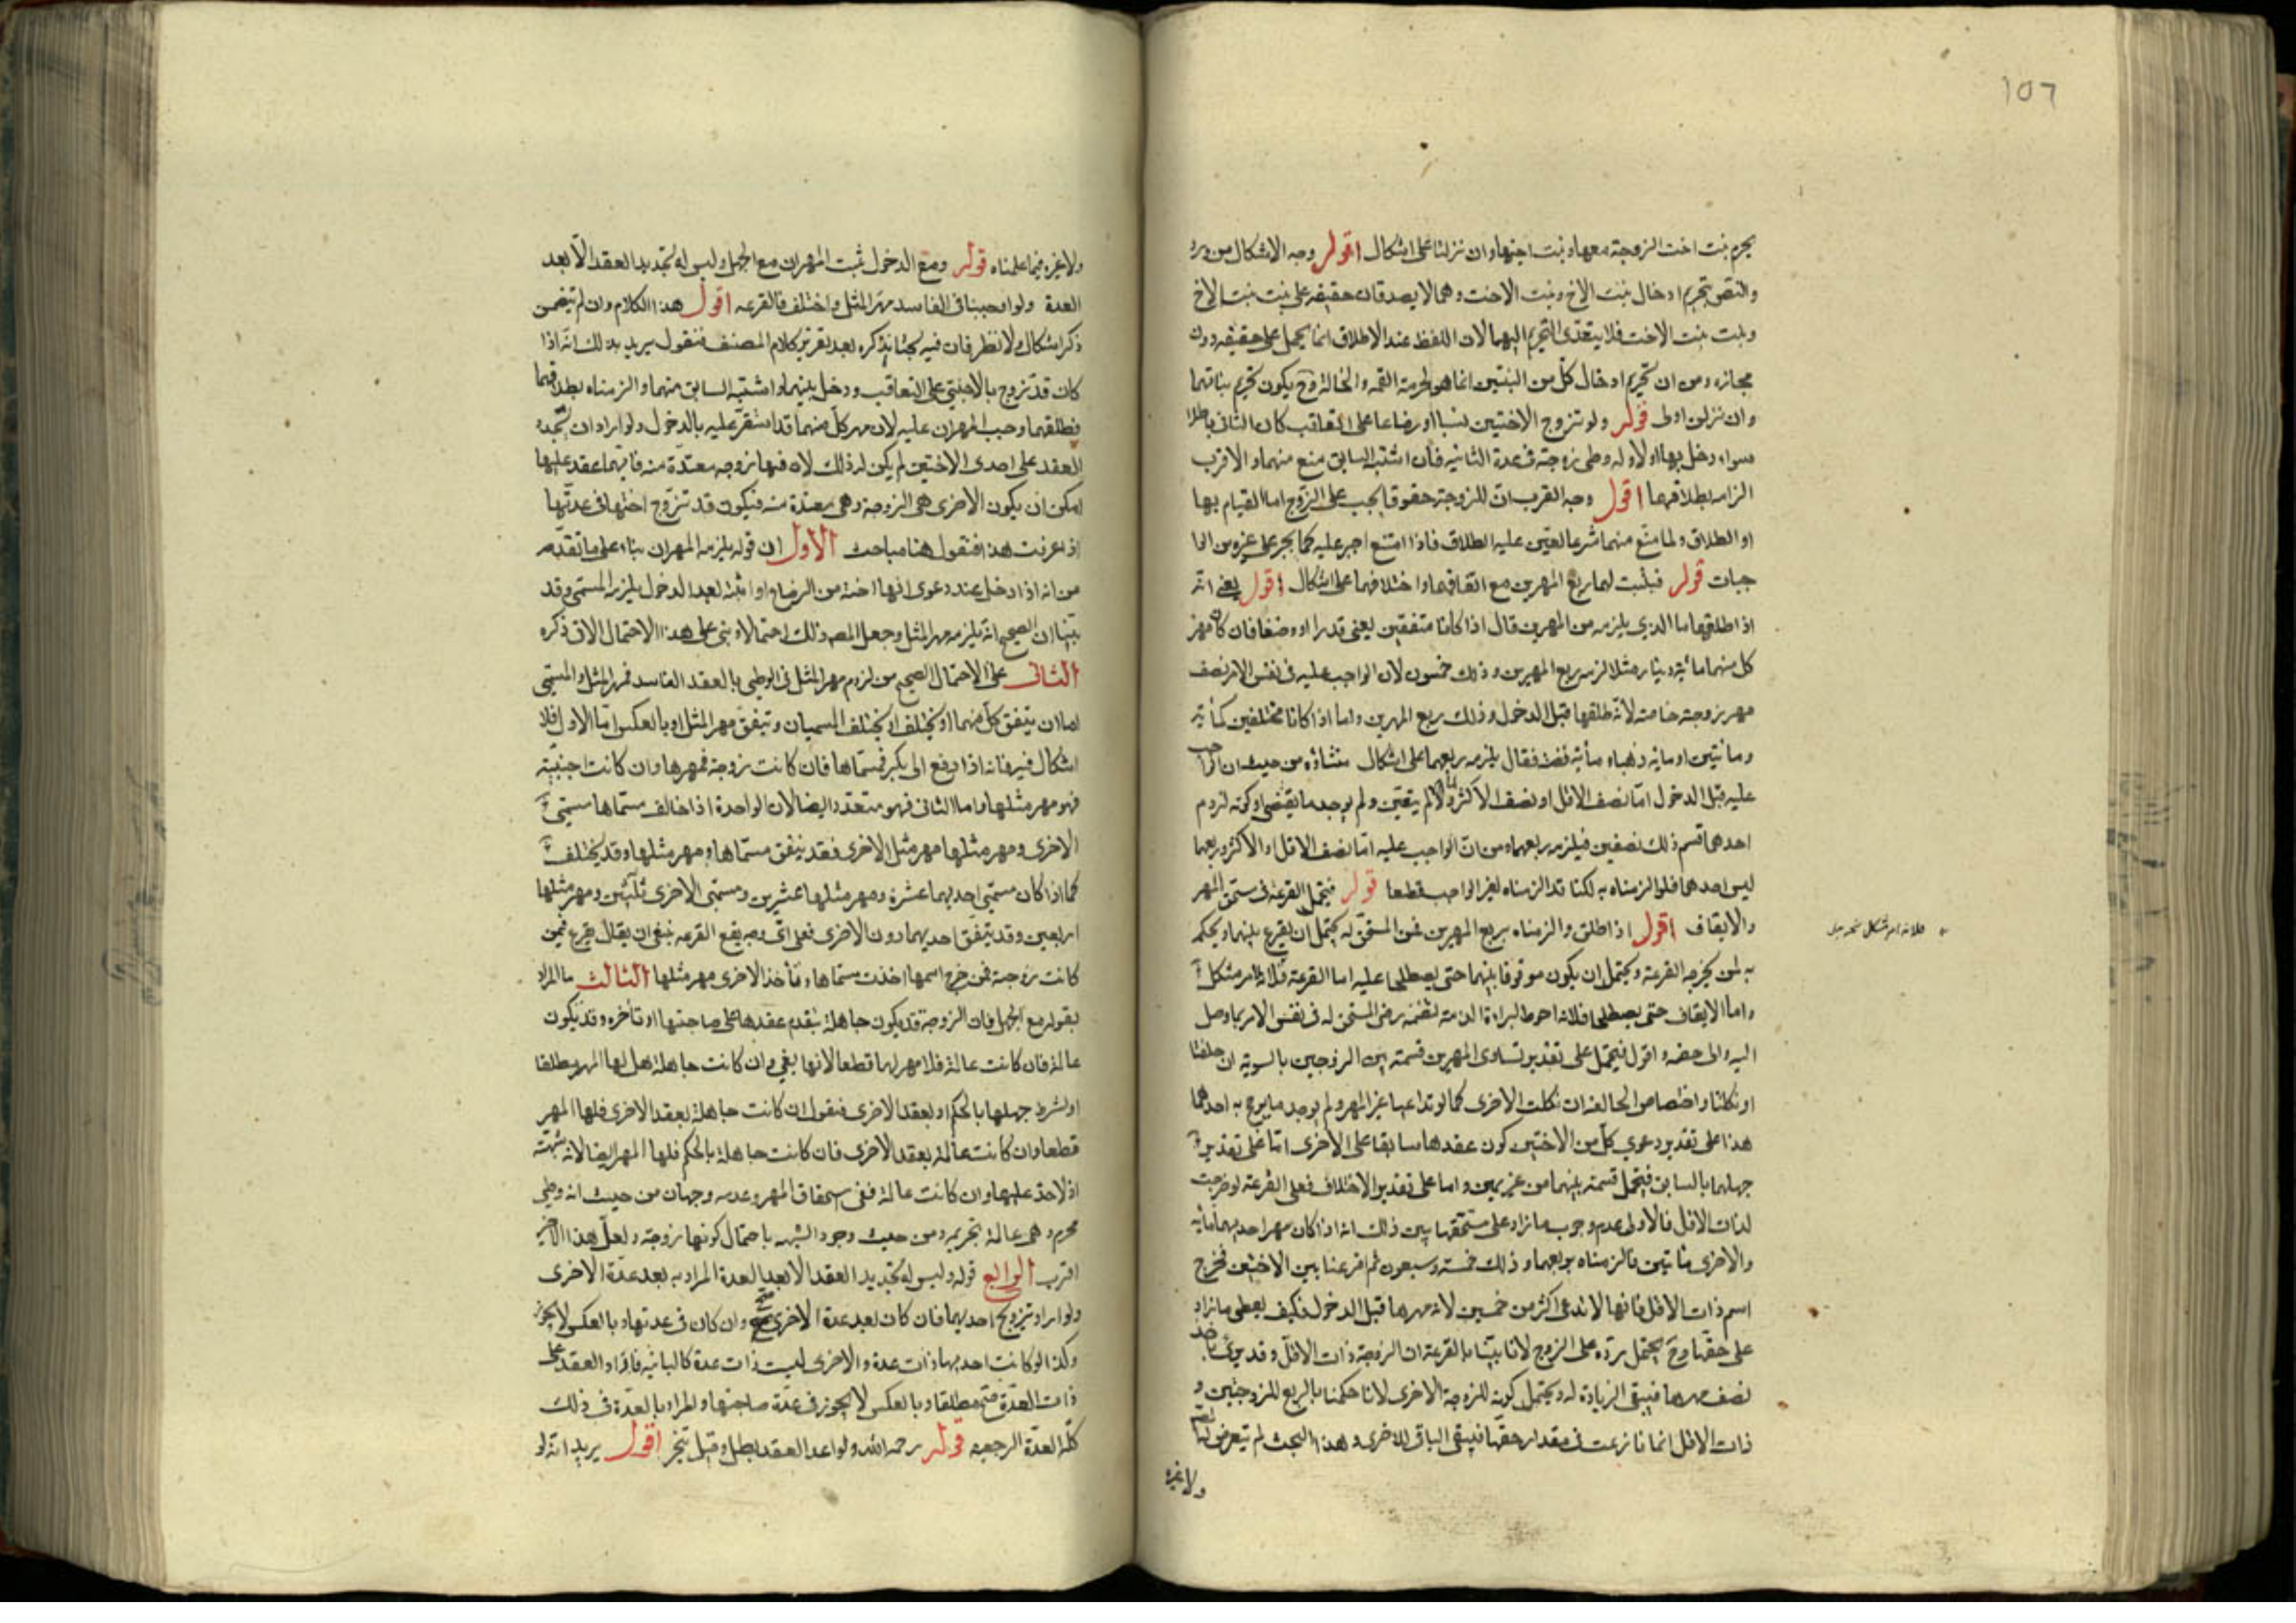 ١٥٦
يحرم بنت اخت الزوجة معها وبنت اخيها وان نزلتا على اشكال اقول وجه الاشكال من ورود
النص بتحريم ادخال بنت الاخ وبنت الاخت وهما لا يصدقان حقيقه على بنت بنت الاخ
وبنت بنت الاخت فلا يتعدى التحريم اليهما لان اللفظ عند الاطلاق انما يحمل على حقيقه دون
مجازه ومن ان تحريم ادخال كل من البنتين انما هو لحرمة العمه والخالة وح يكون تحريم بناتهما
وان نزلن اولى قوله ولو تزوج الاختين نسبا او رضاعا على التعاقب كان الثانى باطلا
سواء دخل بها او لا وله وطى زوجته فى عدة الثانيه فان اشتبه السابق منع منهما والاقرب
الزامه بطلاقهما اقول وجه القرب ان للزوجة حقوقا يجب على الزوج اما القيام بها
او الطلاق ولما منع منهما شرعا تعين عليه الطلاق فاذا امتنع اجبر عليه كما يجبر على غيره من الوا
جبات قوله فيثبت لهما ربع المهرين مع اتفاقهما واختلافهما على اشكال اقول يعنى انه
اذا طلقهما ما الذي يلزمه من المهرين قال اذا كانا متفقين يعنى قدرا او وصفا فان كان مهر
كل منهما مائة دينار مثلا لزمه ربع المهرين وذلك خمسون لان الواجب عليه فى نفس الامر نصف
مهر زوجته خاصة لانه طلقها قبل الدخول وذلك ربع المهرين واما اذا كانا مختلفين كمأية
ومأتين او مأية ذهبا ومأية فضة فقال يلزمه ربعهما على اشكال منشاؤه من حيث ان الواجب
عليه قبل الدخول اما نصف الاقل او نصف الاكثر ولما لم يتعين ولم يوجد ما يقتضى اولوية لزوم
احدهما قسم ذلك نصفين فيلزمه ربعهما ومن ان الواجب عليه اما نصف الاقل او الاكثر وربعهما
ليس احدهما فلو الزمناه به لكنا قد الزمناه لغير الواجب قطعا قوله فيحتمل القرعة فى مستحق المهر
والايقاف اقول اذا طلق والزمناه بربع المهرين فمن المستحق له يحتمل ان يقرع بينهما ويحكم
به لمن يخرجه القرعة ويحتمل ان يكون موقوفا بينهما حتى يصطلحا عليه اما القرعة فلانه امر مشكل
واما الايقاف حتى يصطلحا فلانه احوط لبراءة الذمة لتضمنه رضى المستحق له فى نفس الامر بما وصل
اليه والى خصمه واقول فيحتمل على تقدير تساوى المهرين قسمته بين الزوجين بالسوية ان حلفتا
او نكلتا واختصاص الحالفة ان نكلت الاخرى كما لو تداعيا غير المهر ولم يوجد ما يرجح به احدهما
هذا على تقدير دعوي كل من الاختين كون عقدها سابقا على الاخرى اما على تقدير
جهلهما بالسابق فيحتمل قسمته بينهما من غير يمين واما على تقدير الاختلاف فعلى القرعة لو خرجت
لذات الاقل فالاولى عدم وجوب ما زاد على مستحقها يبين ذلك انه اذا كان مهر احديهما مأية
والاخرى مأتين فالزمناه بربعهما وذلك خمسة وسبعون ثم اقرعنا بين الاختين فخرج
اسم ذات الاقل فانها لا تدعى اكثر من خمسين لانه مهرها قبل الدخول فكيف يعطى ما زاد
على حقها وح يحتمل رده على الزوج لانا بينا بالقرعة ان الزوجة ذات الاقل وقد اخذت
نصف مهرها فيبقى الزيادة له ويحتمل كونه للزوجة الاخرى لانا حكمنا بالربع للزوجتين و
ذات الاقل انما نازعت فى مقدار حقها فيبقى الباقى للاخرى وهذا البحث لم يتعرض له المصنف
ولا غيره
ولا غيره فيما علمناه قوله ومع الدخول يثبت المهران مع الجهل وليس له تجديد العقد الا بعد
العدة ولو اوجبنا فى الفاسد مهر المثل واختلف فالقرعه اقول هذا الكلام وان لم يتضمن
ذكر اشكال ولا نظر فان فيه بحثا نذكره بعد تقرير كلام المصنف فنقول يريد بذلك انه اذا
كان قد تزوج بالاختين على التعاقب ودخل بهما واشتبه السابق منهما والزمناه بطلاقهما
فطلقهما وجب المهران عليه لان مهر كل منهما قد استقر عليه بالدخول ولو اراد ان يجدد
العقد على احدى الاختين لم يكن له ذلك لان فيهما زوجه معتدة منه فايتهما عقد عليها
امكن ان يكون الاخرى هى الزوجة وهى معتدة منه فيكون قد تزوج اختها فى عدتها
اذا عرفت هذا فنقول هنا مباحث الاول ان قوله يلزمه المهران بناء على ما تقدم
من انه اذا دخل عند دعوى انها اخته من الرضاع او اثبته بعد الدخول يلزمه المسمى وقد
بينا ان الصحيح انه يلزمه مهر المثل وجعل المصنف ذلك احتمالا وبنى على هذا الاحتمال الاتى ذكره
الثانى على الاحتمال الصحيح من لزوم مهر المثل فى الوطى بالعقد الفاسد فمهر المثل والمسمى
اما ان يتفق كل منهما او يختلف او يختلف المسميان ويتفق مهر المثل او بالعكس اما الاول فلا
اشكال فيه فانه اذا دفع الى بكر مسماها فان كانت زوجة فمهرها وان كانت اجنبية
فهو مهر مثلها واما الثانى فهو متعدد ايضا لان الواحدة اذا خالف مسماها مسمى
الاخرى ومهر مثلها مهر مثل الاخرى فقد يتفق مسماها ومهر مثلها وقد يختلف
كما اذا كان مسمى احديهما عشرة ومهر مثلها عشرين ومسمى الاخرى ثلثين ومهر مثلها
اربعين وقد يتفق احديهما دون الاخرى فعلى اى وجه يقع القرعه ينبغى ان يقال يقرع فيمن
كانت زوجة فمن خرج اسمها اخذت مسماها وتأخذ الاخرى مهر مثلها الثالث ما المراد
بقوله مع الجهل فان الزوجة قد يكون جاهلة بتقدم عقدها على صاحبتها او تأخره وقد يكون
عالمة فان كانت عالمة فلا مهر لها قطعا لانها بغى وان كانت جاهلة هل لها المهر مطلقا
او بشرط جهلها بالحكم او بعقد الاخرى فنقول ان كانت جاهلة بعقد الاخرى فلها المهر
قطعا وان كانت عالمة بعقد الاخرى فان كانت جاهلة بالحكم فلها المهر ايضا لانه شبهة
اذ لا حد عليها وان كانت عالمة ففى استحقاق المهر وعدمه وجهان من حيث انه وطى
محرم وهى عالمة بتحريمه ومن حيث وجود الشبهه باحتمال كونها زوجة ولعل هذا الاخير
اقرب الرابع قوله وليس له تجديد العقد الا بعد العدة المراد به بعد عدة الاخرى
ولو اراد تزويج احديهما فان كان بعد عدة الاخرى صح وان كان فى عدتها وبالعكس لا يجوز
وكذا لو كانت احديهما ذات عدة والاخرى ليست ذات عدة كاليائسة فاراد العقد على
ذات العدة صح مطلقا وبالعكس لا يجوز فى عدة صاحبتها والمراد بالعدة فى ذلك
كله العدة الرجعية قوله رحمه الله ولو اعد العقد بطل وقيل تخير اقول يريد انه لو